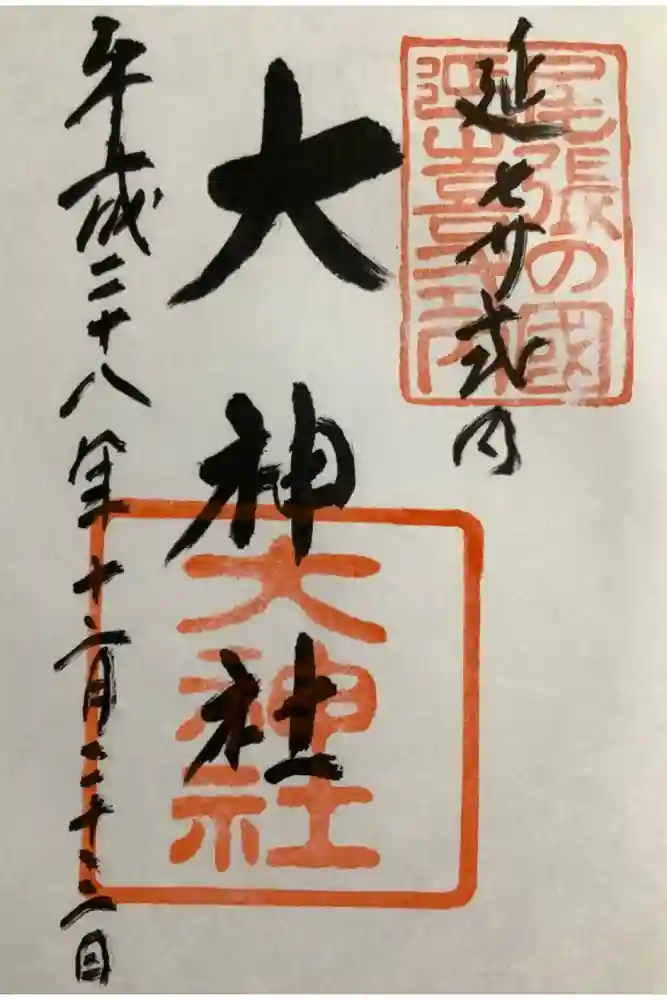 尾張の國
延喜式内
延㐂式内
大神社
大神社
平成二十八年十二月二十二日